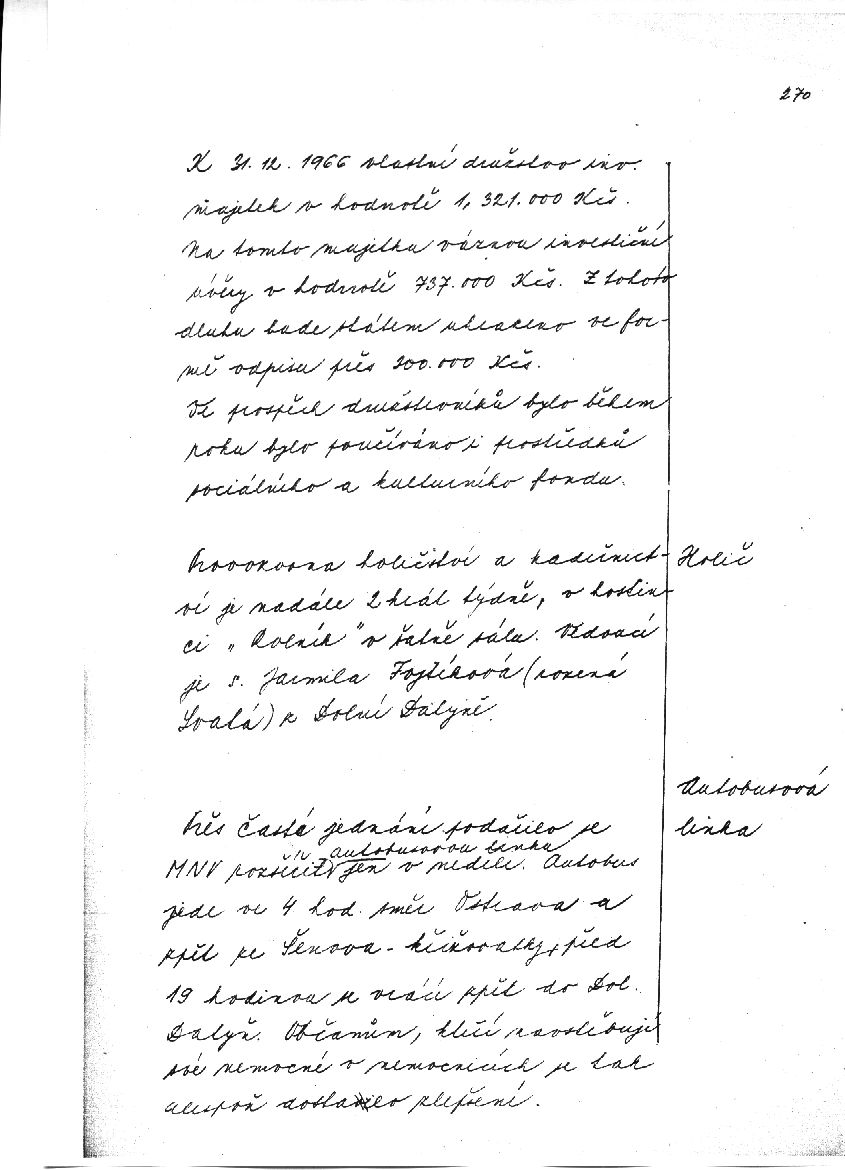 270
K 31.12. 1966 vlastní družstvo inv.
majetek v hodnotě 1, 321.000 Kčs.
Na tomto majetku váznou investiční
úvěry v hodnotě 737.000 Kčs. Z tohoto
dluhu bude státem uhrazeno ve for-
mě odpisu přes 200.000 Kčs.
Ve prospěch družstevníků bylo během
roku bylo používáno i prostředků
sociálního a kulturního fondu.
Provozovna holičství a kadeřnict- Holič
ví je nadále 2krát týdně, v hostin-
ci „Rolník" v šatně sálu. Vedoucí
je s. Jarmila Fojtíková (rozená
Lvalá) z Dolní Datyně.
Autobusová
linka
Přes časté jednání podařilo se
MNV rozšířit autobusovou linku jen v neděli. Autobus
jede ve 4 hod. směr Ostrava a
zpět ze Šenova - křižovatky, před
19 hodinou se vrací zpět do Dol.
Datyň. Občanům, kteří navštěvují
své nemocné v nemocnicích se tak
alespoň dostalo zlepšení.